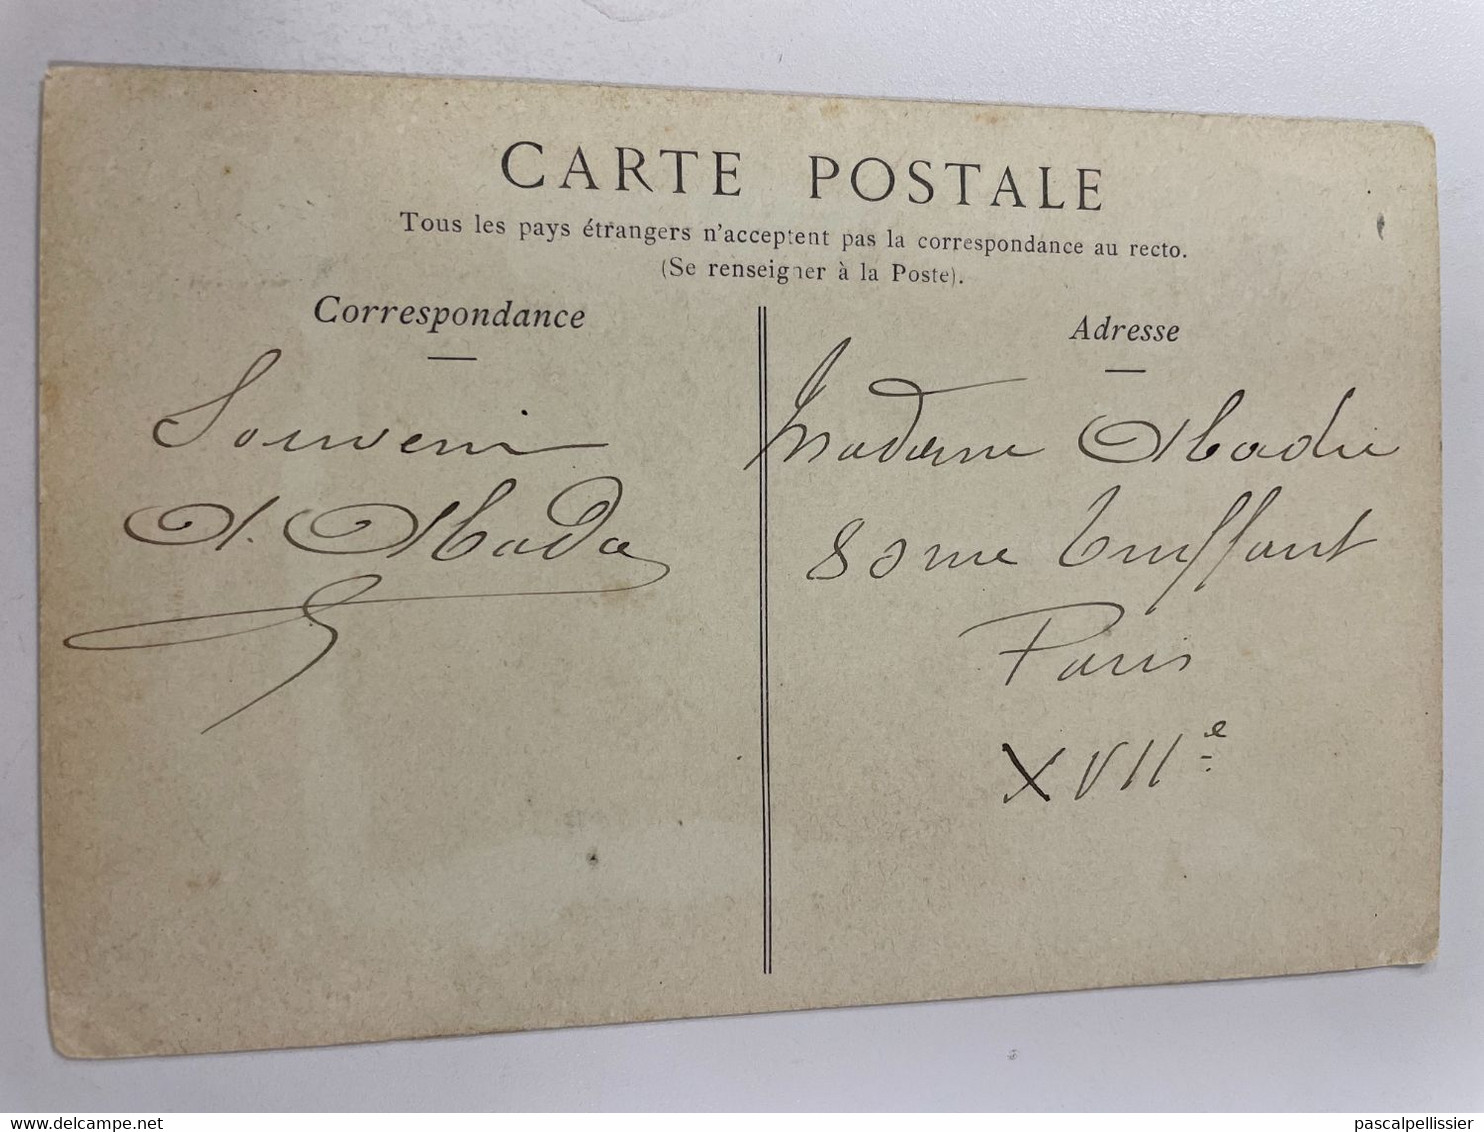 CARTE POSTALE
Tous les pays étrangers n'acceptent pas la correspondance au recto.
(Se renseigner à la Poste).
Correspondance
Souvenir
A. Abadie
Adresse
Madame Abadie
80 rue Truffaut
Paris
XVIIe
delcampe.net
pascalpellissier